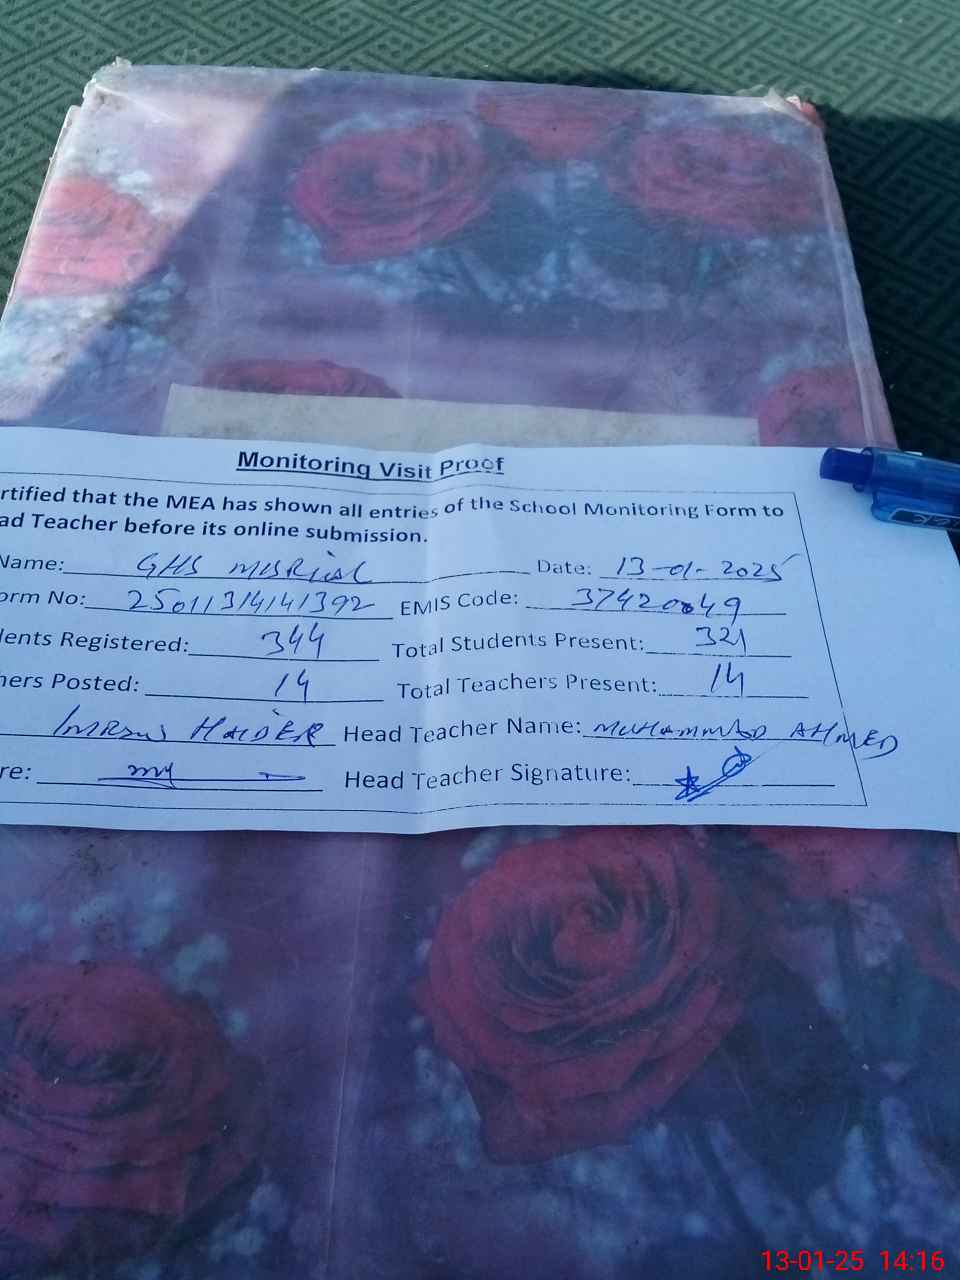 Monitoring Visit Proof
rtified that the MEA has shown all entries of the School Monitoring Form to
ad Teacher before its online submission.
Name: GHS MISRIAL Date: 13-01-2025
orm No: 25011314141392 EMIS Code: 37420049
dents Registered: 344 Total Students Present: 321
hers Posted: 14 Total Teachers Present: 14
IMRAN HAIDER Head Teacher Name: MUHAMMAD AHMED
re: Head Teacher Signature:
13-01-25 14:16